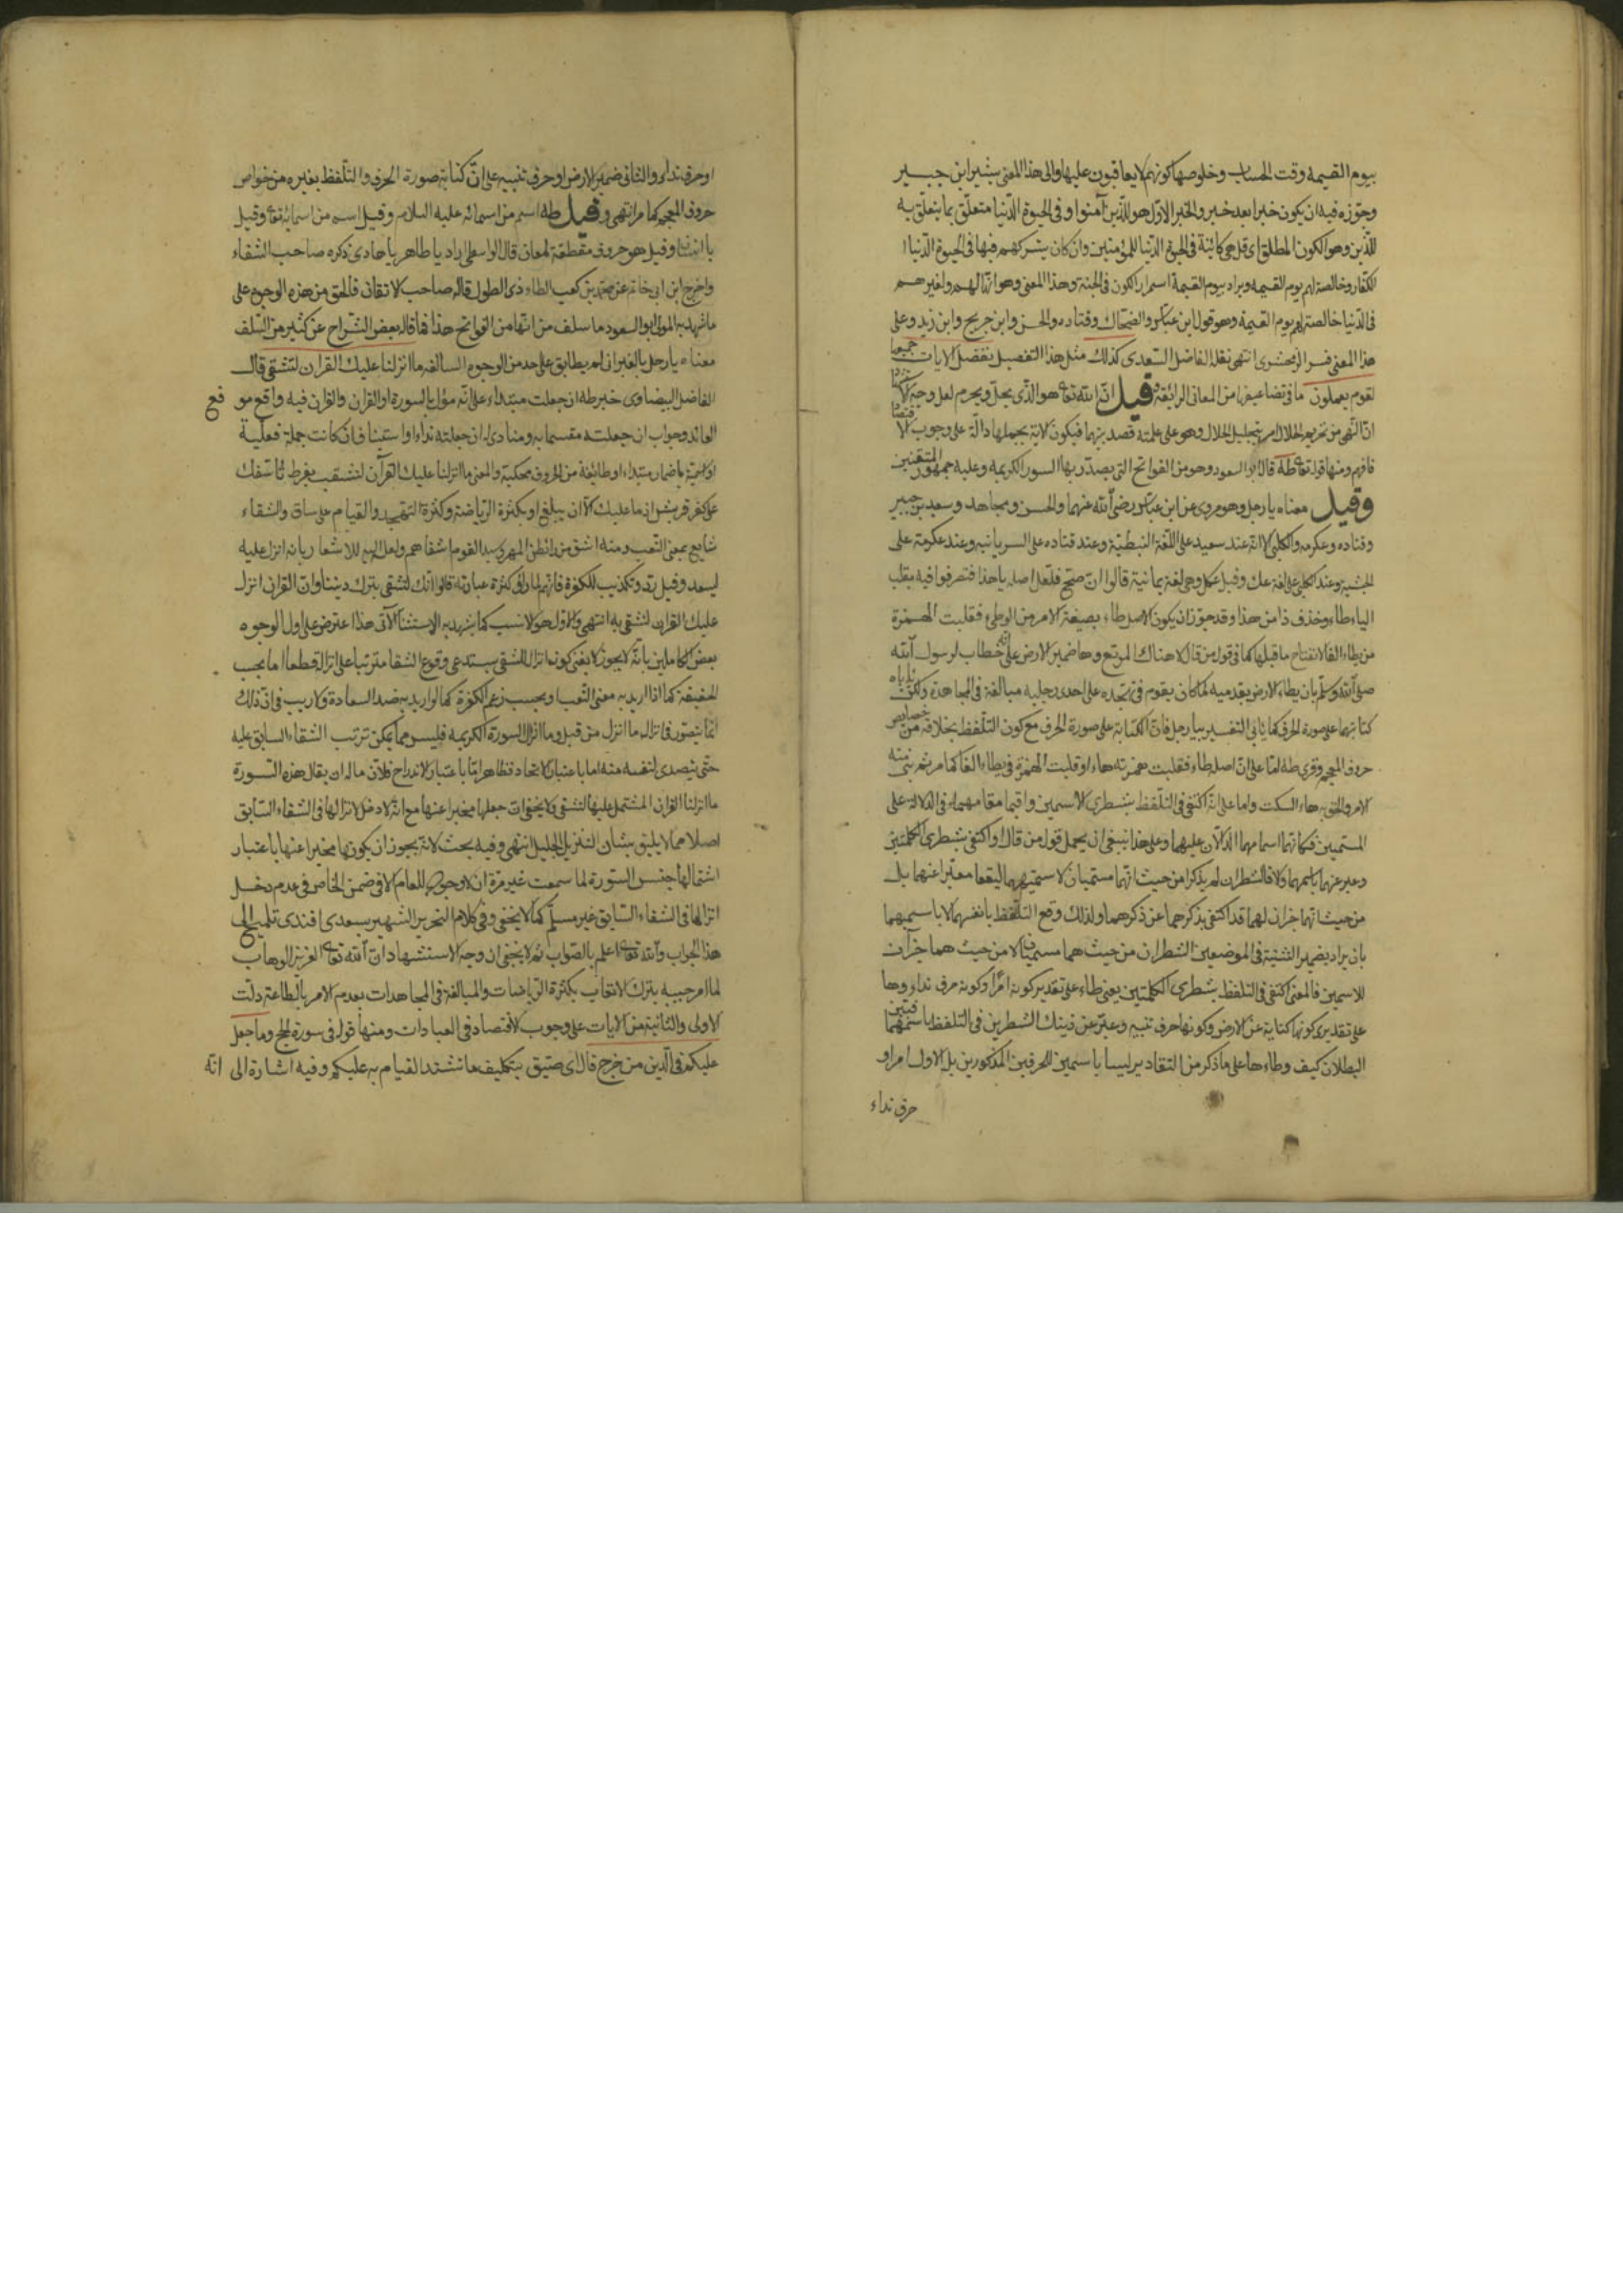 بيوم القيمة وقت الحساب وخلوصها كونهم لا يعاقبون عليها والى هذا المعنى يشير ابن جبير
وجوزه فيه ان يكون خبرا بعد خبر والخبر الاول هو للذين آمنوا وفى الحيوة الدنيا متعلق بما يتعلق به
للذين وهو الكون المطلق اى قل هى كائنة فى الحيوة الدنيا للمؤمنين وان كان يشركهم فيها فى الحيوة الدنيا
الكفار وخالصة لهم يوم القيمة ويراد بيوم القيمة استمرار الكون فى الجنة وهذا المعنى وهو انها لهم ولغيرهم
فى الدنيا خالصة لهم يوم القيمة وهو قول ابن عباس والضحاك وقتاده والحسن وابن جريج وابن زيد وعلى
هذا المعنى فسر الزمخشرى انتهى نقله الفاضل السعدى كذلك مثل هذا التفصيل نفصل الايات جميعا
لقوم يعملون ما فى تضاعيفها من المعانى الرائقة وقيل ان الله تعا هو الذى يحل ويحرم لعل وجه
ان النهى من تحريم الحلال امر بتحليل الحلال وهو على علمته قصد بهما فيكون الاية بجملها دالة على وجوب الاقتصاد
فافهم ومنها قوله تعا طه قال ابو السعود وهو من الفواتح التى يصدر بها السور الكريمه وعليه جمهور المتقنين
وقيل معناه يا رجل وهو مروى عن ابن عباس رضى الله عنهما والحسن ومجاهد وسعيد بن جبير
وقتاده وعكرمه والكلبى الا انه عند سعيد على اللغة النبطية وعند قتاده على السريانيه وعند عكرمة على
الحبشية وعند الكلبى على لغة عك وقيل عكل وهى لغة يمانية قالوا ان صح فلعل اصله يا هذا فتصرفوا فيه بقلب
الياء طاء وحذف ذا من هذا وقد جوز ان يكون الاصل طاء بصيغة الامر من الوطئ فقلبت الهمزة
من يطاء الفا لانفتاح ما قبلها كما فى قول من قال لا هناك المرتع وها ضمير الارض على انه خطاب لرسول الله
صلى الله وسلم بان يطاء الارض بقدميه لما كان يقوم فى تهجده على احدى رجليه مبالغة فى المجاهدة ولكن ياباه
كتابتهما على صورة الحرف كما ياتى التفسير بيا رجل فان الكتابة على صورة الحرف مع كون التلفظ بخلافه من خصايص
حروف المعجم وقرئ طه اما على ان اصله طاء فقلبت همزته هاء او قلبت الهمزة فى يطاء الفا كما مر ثم بنى منه
الامر والحق به هاء السكت واما على انه اكتفى فى التلفظ بشطرى الاسمين واقيما مقامهما فى الدلالة على
المسميين فكانهما اسماهما الدالان عليهما وعلى هذا ينبغى ان يحمل قول من قال او اكتفى بشطرى الكلمتين
وعبر عنهما باسمهما والا فالشطران لم يذكرا من حيث انهما مسميان لاسميهما ليقعا معبرا عنهما بل
من حيث انهما جزان لهما قد اكتفى بذكرهما عن ذكرهما ولذلك وقع التلفظ بانفسهما لا باسميهما
بان يراد بضمير التثنية فى الموضعين الشطران من حيث هما مسميان لا من حيث هما جزآن
للاسمين فالمعنى اكتفى فى التلفظ بشطرى الكلمتين يعنى طاء على تقدير كونه امرا وكونه حرف نداء وها
على تقديرى كونها كناية عن الارض وكونها حرف تنبيه وعبر عن ذينك الشطرين فى التلفظ باسمهما فبين
البطلان كيف وطاء وها على ما ذكر من التقادير ليسا باسمين للحرفين المذكورين بل الاول امر او
حرف نداء
او حرف نداء والثانى ضمير الارض او حرف تنبيه على ان كتابة صورة الحرف والتلفظ بغيره من خواص
حروف المعجم كما مر انتهى وقيل طه اسم من اسمائه عليه السلام وقيل اسم من اسمائه تعا وقيل
يا انسان وقيل هو حروف مقطعة لمعان قال الواسطى اراد يا طاهر يا هادى ذكره صاحب الشفاء
واخرج ابن ابى حاتم عن محمد بن كعب الطاء ذى الطول قاله صاحب الاتقان فالحق من هذه الوجوه على
ما شهد به المولى ابو السعود ما سلف من انها من الفواتح هذا فما قاله بعض الشراح عن كثير من السلف
معناه يا رجل بالعبرانى لم يطابق على حد من الوجوه السالفه ما انزلنا عليك القرآن لتشقى قال
الفاضل البيضاوى خبر طه ان جعلت مبتداء على انه مؤل بالسورة او القران والقران فيه واقع موقع
العائد وجواب ان جعلته مقسما به ومنادى له ان جعلته نداء او استيناف ان كانت جملة فعلية
او اسمية باضمار مبتداء او طائفة من الحروف محكية والمعنى ما انزلنا عليك القرآن لتشقى بفرط تاسفك
على كفر قريش اذ ما عليك الا ان يبلغ او بكثرة الرياضة وكثرة التهجد والقيام على ساق والشقاء
شايع بمعنى التعب ومنه اشقى من رائض المهر وسيد القوم اشقاهم ولعل اليه للاشعار بانه انزل عليه
ليسعد وقيل رد وتكذيب للكفرة فانهم لما راوا كثرة عبادته قالوا انك لتشقى بترك ديننا وان القران انزل
عليك القران لتشقى به انتهى والاول هو الانسب كما يشهد به الاستثنا الآتى هذا اعترض على اول الوجوه
بعض الكاملين بانه لا يجوز لا يغنى كونه انزل للشقى يستدعى وقوع الشقا مترتبا على انزاله قطعا اما بحسب
الحقيقة كما اذا اريد به معنى التعب او بحسب زعم الكفرة كما لو اريد به ضد السعادة ولا ريب فى ان ذلك
انما يتصور فى انزال ما انزل من قبل وما انزال السورة الكريمه فليس مما يمكن ترتب الشقاء السابق عليه
حتى يتصدى لنفسه منه اما باعتبار الاتحاد فظاهر اما باعتبار الاندراج فلان ماله ان يقال هذه السورة
ما انزلنا القران المشتمل عليها لتشقى ولا يخفى ان جعلها مخبرا عنها مع انه لا دخل لانزالها فى الشقاء السابق
اصلا مما لا يليق بشان التنزيل الجليل انتهى وفيه بحث لانه يجوز ان يكون ها مخبرا عنها باعتبار
اشتمالها جنس السورة لما سمعت غير مرة ان لا وجود للعام الا فى ضمن الخاص فى عدم دخل
انزالها فى الشقاء السابق غير مسلم كما لا يخفى وفى كلام النحرير الشهير بسعدى افندى تلميح الى
هذا الجواب والله تعا اعلم بالصواب ثم لا يخفى ان وجه الاستشهاد ان الله تعا العزيز الوهاب
لما امر حبيبه بترك الاتعاب بكثرة الرياضات والمبالغة فى المجاهدات بعدم الامر بالطاعة دلت
الاولى والثانية من الايات على وجوب الاقتصاد فى العبادات ومنها قوله فى سورة الحج وما جعل
عليكم فى الدين من حرج قال اى ضيق بتكليف ما تشتد القيام به عليكم وفيه اشارة الى انه